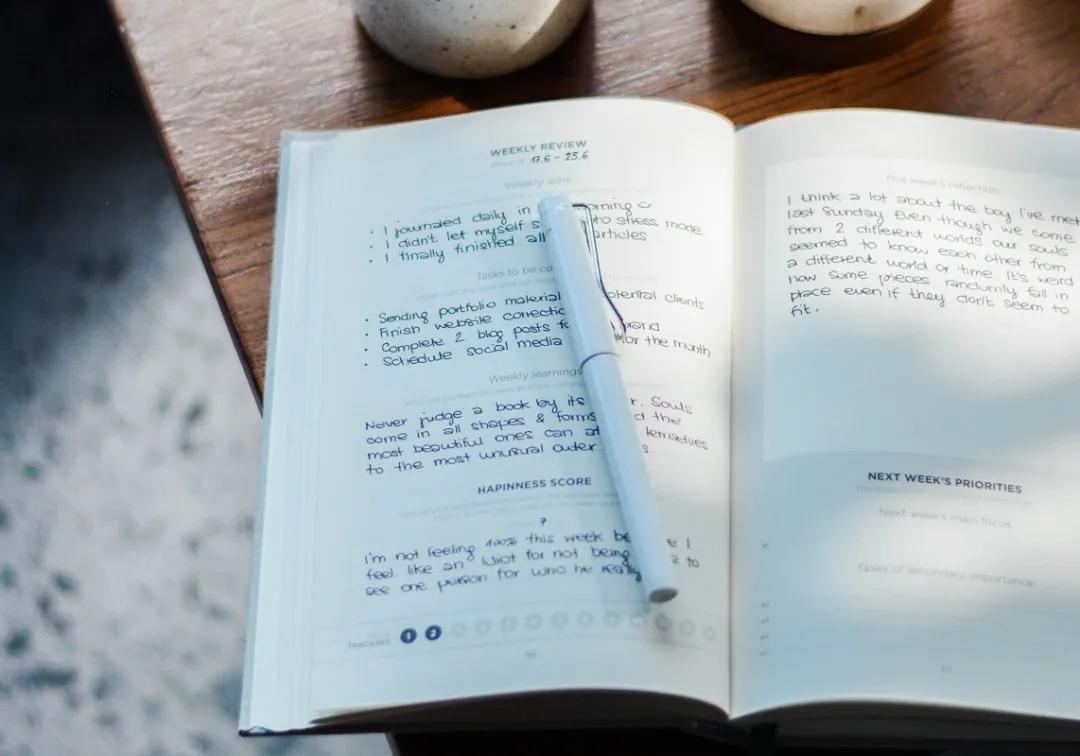 WEEKLY REVIEW
17.6 - 23.6
Weekly wins
• I journaled daily in orning
• I didn't let myself s to stress mode
• I finally finished all articles
Tasks to be co
• Sending portfolio material otential clients
• Finish website correctio
• Complete 2 blog posts f rand
• Schedule social media or the month
Weekly learnings
Never judge a book by its r. Souls
come in all shapes & forms d the
most beautiful ones can at hemselves
to the most unusual outer s.
HAPINNESS SCORE
7
I'm not feeling 100% this week be e I
feel like an idiot for not being e to
see one person for who he really
TRACKING 1 2
This week's reflection
I think a lot about the boy I've met
last Sunday Even though we come
from 2 different worlds our souls
seemed to know each other from
a different world or time. It's weird
how some pieces randomly fall in
place even if they don't seem to
fit.
NEXT WEEK'S PRIORITIES
Next week's main focus
Tasks of secondary importance